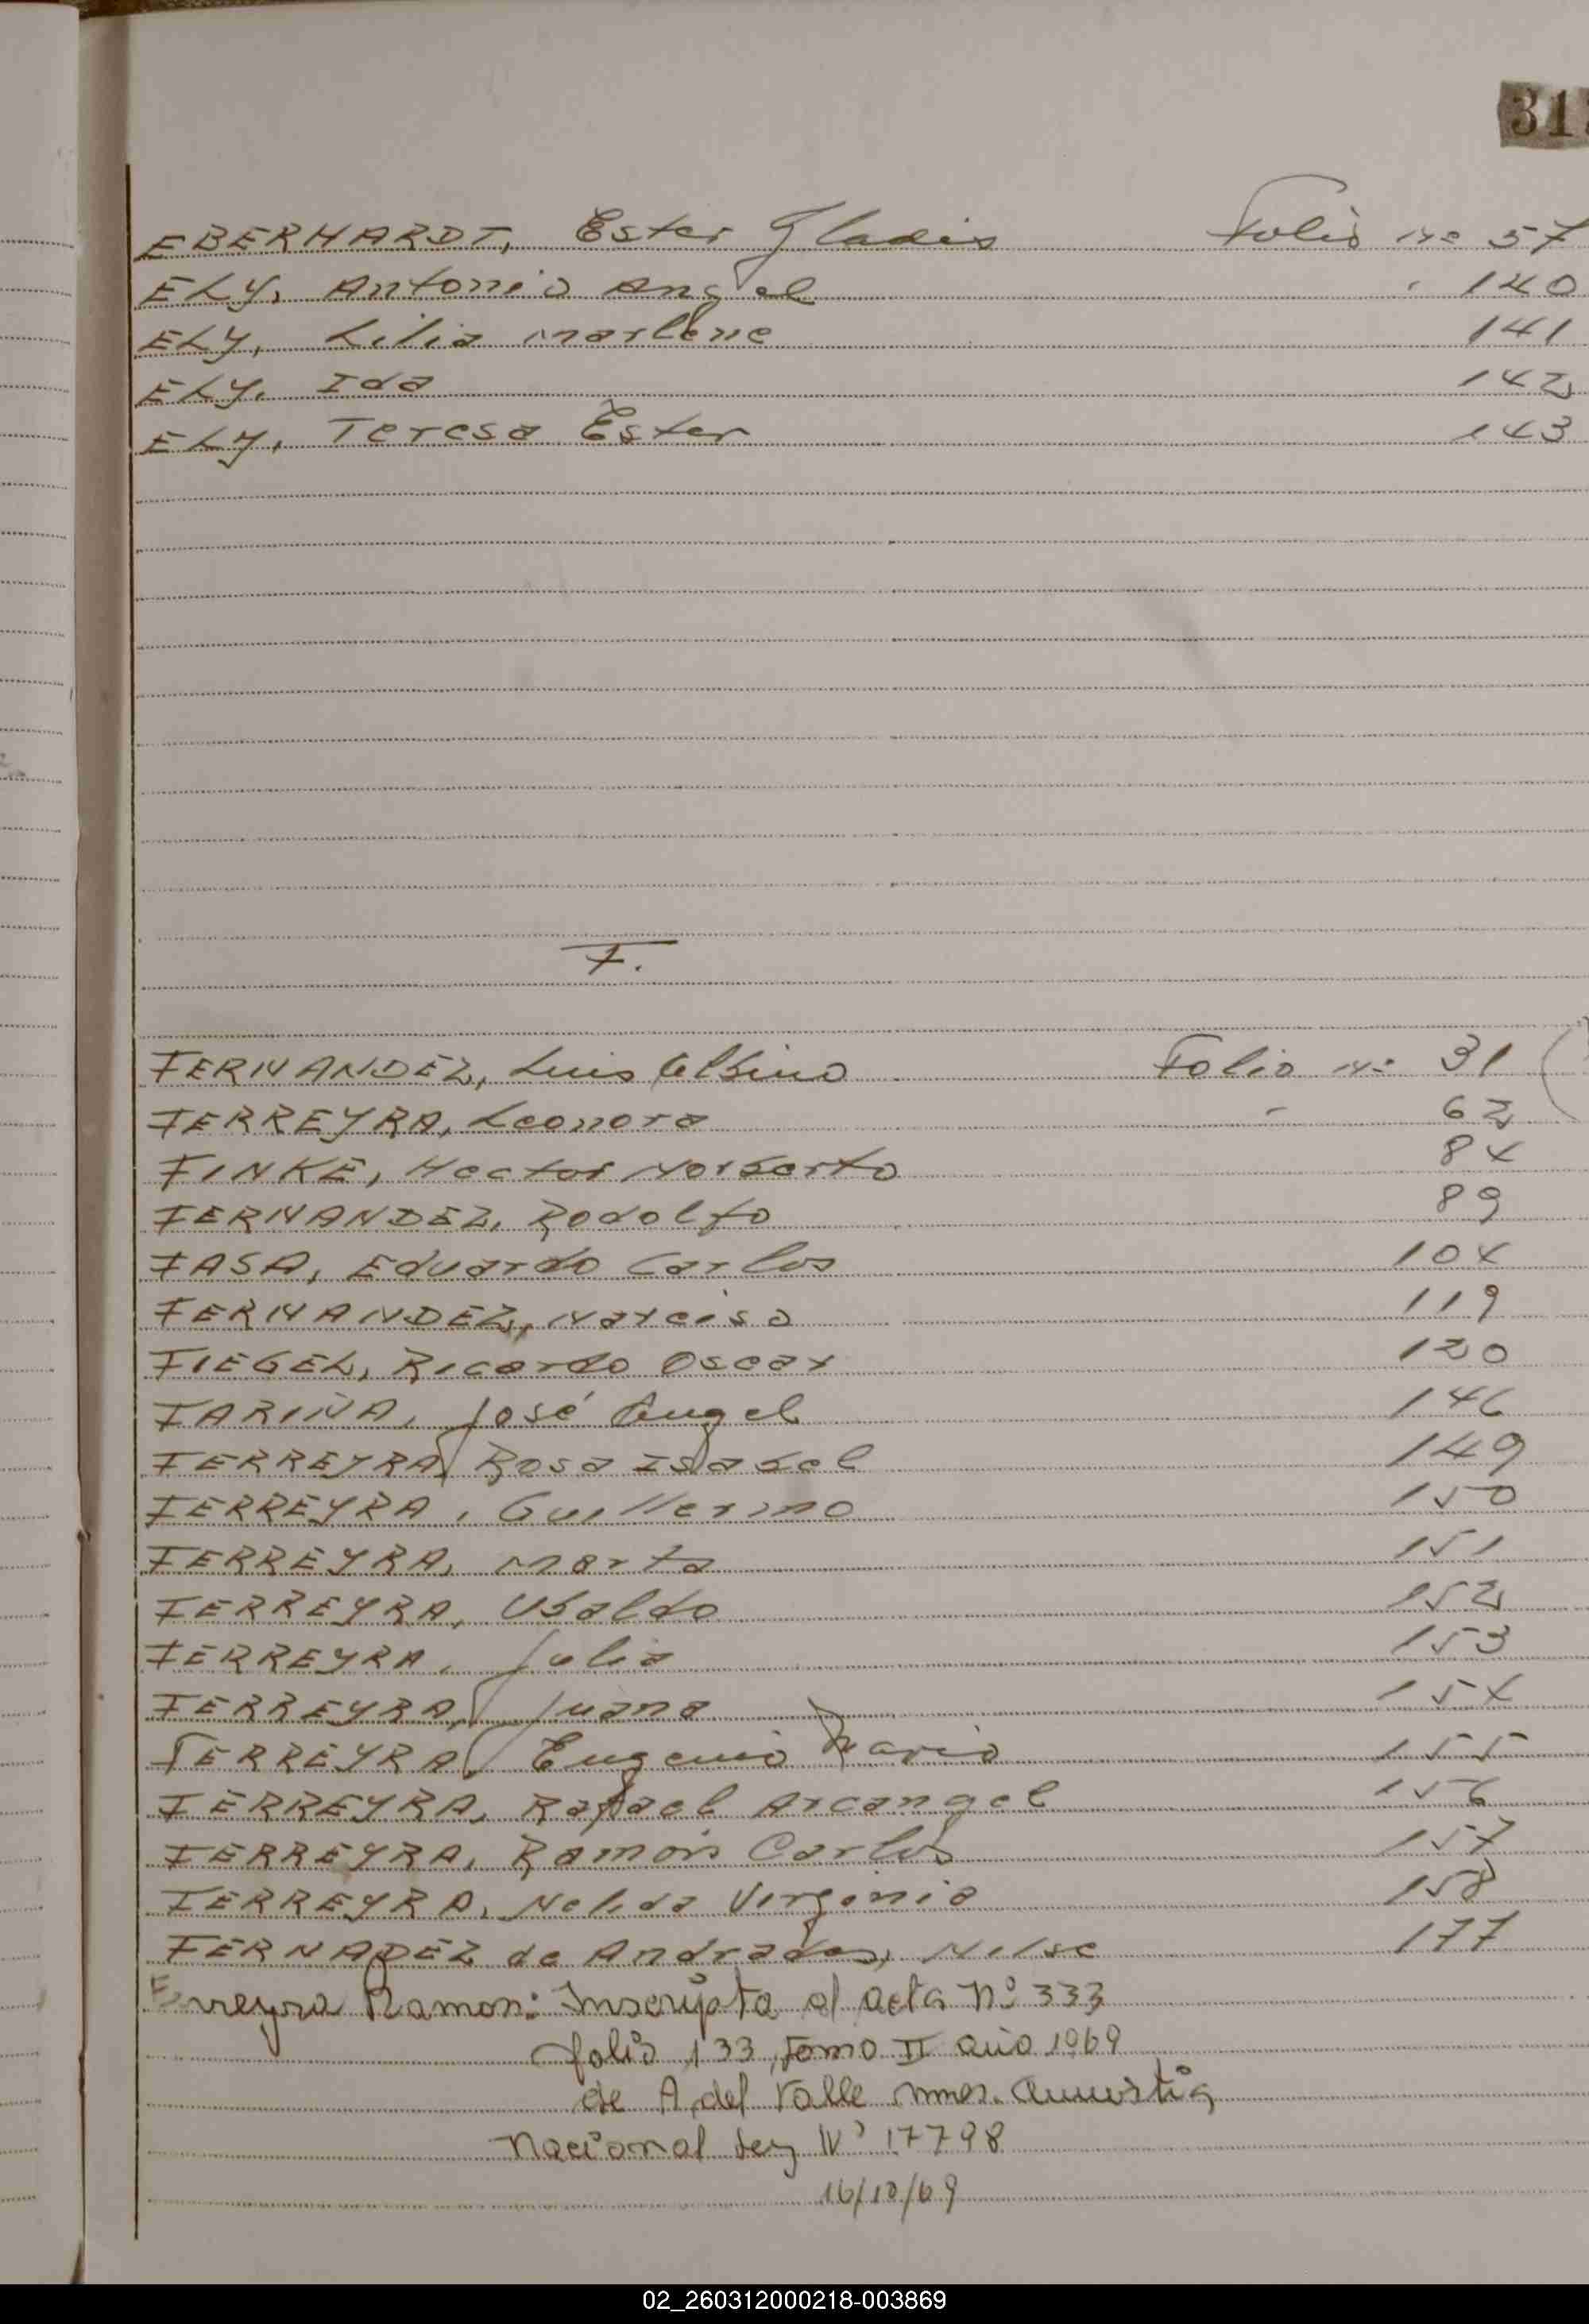 31
EBERHARDT, Ester Gladis Folio Nº 57
ELY, Antonio Angel 140
ELY, Lilia Marlene 141
ELY, Ida 142
ELY, Teresa Ester 143
F.
FERNANDEZ, Luis Albino Folio Nº 31
FERREYRA, Leonora " 62
FINKE, Hector Norberto 84
FERNANDEZ, Rodolfo 89
FASA, Eduardo Carlos 104
FERNANDEZ, Narciso 119
FIEGEL, Ricardo Oscar 120
FARIÑA, José Angel 146
FERREYRA, Rosa Isabel 149
FERREYRA, Guillermo 150
FERREYRA, Marta 151
FERREYRA, Ubaldo 152
FERREYRA, Julia 153
FERREYRA, Juana 154
FERREYRA, Eugenio Mario 155
FERREYRA, Rafael Arcangel 156
FERREYRA, Ramón Carlos 157
FERREYRA, Nelida Virginia 158
FERNADEZ de Andrada, Nilse 177
Ramon: Inscripta al acta Nº 333
folio 133, Tomo II año 1969
de A. del Valle
Nacional Ley Nº 17798
16/10/69
02_260312000218-003869